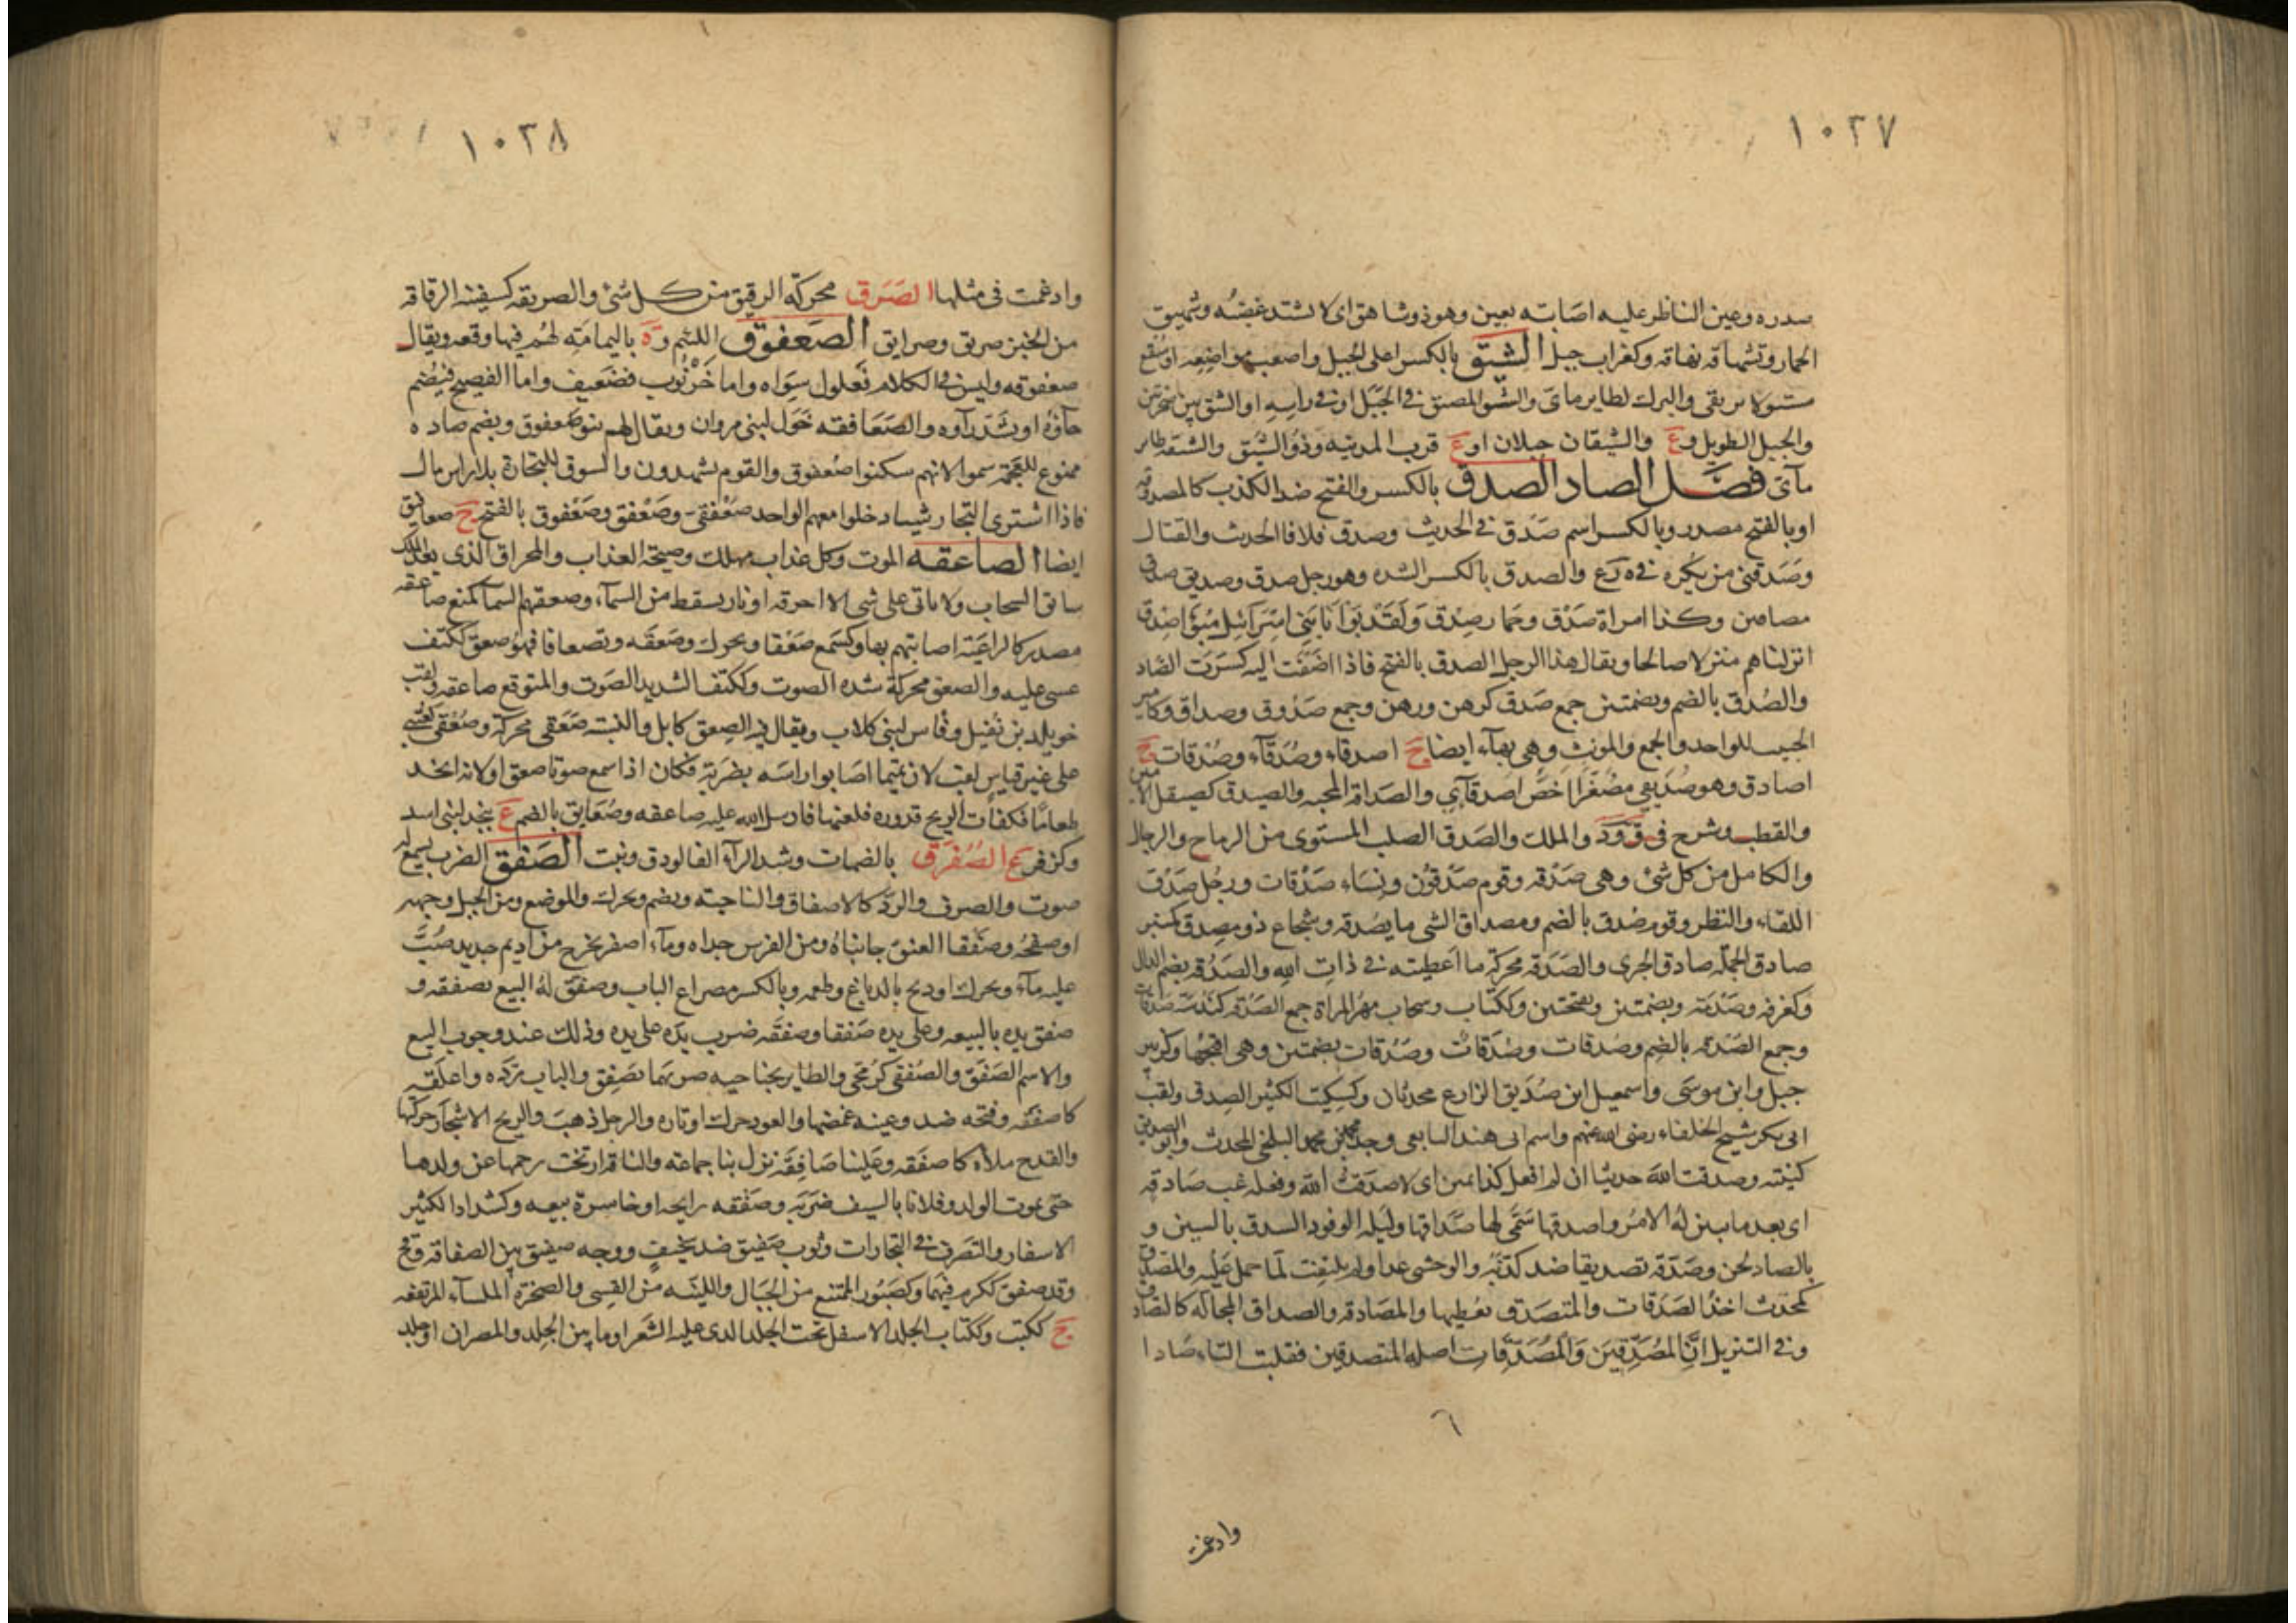 ١٠٢٧
صدره وعين الناظر عليه اصابته بعين وهو ذو شاهق اى لا يشتد غضبه وشهيق
الحمار وتشهاقه نهاقه وكغراب جبل الشيق بالكسر اعلى الجبل واصعب مواضعه او سقع
مستو لا يرتقى والبرك لطاير مائى والشق الضيق فى الجبل او فى راسه او الشق بين صخرتين
والجبل الطويل وع والشيقان جبلان او ع قرب المدينه وذو الشيق والشيقه طاير
مآئى فصل الصاد الصدق بالكسر والفتح ضد الكذب كالمصدوقه
او بالفتح مصدر وبالكسر اسم صدق فى الحديث وصدق فلانا الحديث والقتال
وصدقنى سن بكره فى ه د ع والصدق بالكسر الشده وهو رجل صدق وصديق صدق
مضافين وكذا امراة صدق وحمار صدق وَلَقَدْ بَوَّأْنَا بَنِى اِسْرَآئِيلَ مُبَوَّأَ صِدْقٍ
انزلناهم منزلا صالحا ويقال هذا الرجل الصدق بالفتح فاذا اضفت اليه كسرت الصاد
والصدق بالضم وبضمتين جمع صدق كرهن ورهن وجمع صدوق وصداق وكامير
الحبيب للواحد والجمع والمونث وهى بهآء ايضا ج اصدقاء وصدقآء وصدقان جج
اصادق وهو صديقى مصغرا اخص اصدقآئى والصداقة المحبه والصيدق كصيقل الامين
والقطب وشرح فى ق ود والملك والصدق الصلب المستوى من الرماح والرجال
والكامل من كل شئ وهى صدقه وقوم صدقون ونساء صدقات ورجل صدق
اللقاء والنظر وقوم صدق بالضم ومصداق الشى ما يصدقه وشجاع ذو مصدق كمنبر
صادق الحملة صادق الجرى والصدقه محركة ما اعطيته فى ذات الله والصدقه بضم الدال
وكغرفه وصدمة وبضمتين وبفتحتين وككتاب وسحاب مهر المراة جمع الصدقه كندسة صدقات
وجمع الصدقه بالضم وصدقات وصدقات وصدقات بضمتين وهى اقبحها وكزبير
جبل وابن موسى واسمعيل ابن صديق الزارع محدثان وكسكيت الكثير الصدق ولقب
ابى بكر شيخ الخلفاء رضى الله عنهم واسم ابى هند التابعى وجد محمد بن محمد البلخى المحدث وابو الصديق
كنيته وصدقت الله حديثا ان لم افعل كذا يمين اى لا صدقت الله وفعله غب صادقه
اى بعد ما تبين له الامر واصدقها سمى لها صداقها وليله الوقود السدق بالسين و
بالصاد لحن وصدقه تصديقا ضد كذبه والوحشى عدا ولم يلتفت لما حمل عليه والمصدق
كمحدث اخذ الصدقات والمتصدق معطيها والمصادقه والصداق المخاله كالتصادق
وفى التنزيل اِنَّ الْمُصَّدِّقِينَ وَالْمُصَّدِّقَاتِ اصله المتصدقين فقلبت التاء صادا
٦
وادغمت
١٠٢٨
وادغمت فى مثلها الصرق محركة الرقيق من كل شئ والصريقه كسفينه الرقاقه
من الخبز ج صريق وصرايق الصعفوق اللئيم وة باليمامة لهم فيها وقعه ويقال
صعفوقه وليس فى الكلام فعلول سواه واما خرنوب فضعيف واما الفصيح فيضم
خآؤه او تشدد رآوه والصعافقه خول لبنى مروان ويقال لهم بنو صعفوق ويضم صاده
ممنوع للعجمة سموا لانهم سكنوا صعفوق والقوم يشهدون السوق للتجارة بلا راس مال
فاذا اشترى التجار شيئا دخلوا معهم الواحد صعفقى وصعفق وصعفوق بالفتح ج صعافيق
ايضا الصاعقه الموت وكل عذاب مهلك وصيحة العذاب والمخراق الذى بيد الملك
سائق السحاب ولا ياتى على شى الا احرقه او نار يسقط من السمآء وصعقهم السمآ كمنع صاعقه
مصدر كالراغية اصابتهم بها وكسمع صعقا ويحرك وصعقه وتصعاقا فهو صعق ككتف
غشى عليه والصعق محركة شده الصوت وككتف الشديد الصوت والمتوقع صاعقه ولقب
خويلد بن نفيل وفارس لبنى كلاب ويقال فيه الصعق كابل والنسبة صعقى محركة وصعقى كعنبى
على غير قياس لقب لان تميما اصابوا راسه بضربة فكان اذا سمع صوتا صعق او لانه اتخذ
طعاما فكفات الريح قدوره فلعنها فارسل الله عليه صاعقه وصعايق بالضم ع بنجد لبنى اسد
وكزفر ع الصفرق بالضمات وشد الرآء الفالودق ونبت الصفق الضرب يسمع له
صوت والصرف والرد كالاصفاق والناحية ويضم ويحرك والموضع ومن الجبل وجهه
او صفحه وصفقا العنق جانباه ومن الفرس خداه ومآء اصفر يخرج من اديم جديد صب
عليه مآء ويحرك او ريح الدباغ وطعمه وبالكسر مصراع الباب وصفق له البيع يصفقه و
صفق يده بالبيعه وعلى يده صفقا وصفقه ضرب يده على يده وذلك عند وجوب البيع
والاسم الصفق والصفقى كزمجى والطاير بجناحيه ضربهما تصفق والباب رده واغلقه
كاصفقه وفتحه ضد وعينه غمضها والعود حرك اوتاره والرجل ذهب والريح الاشجار حركها
والقدح ملاه كاصفقه وعلينا صافقه نزل بنا جماعه والناقه ارتجت رحمها عن ولدها
حتى يموت الولد وفلانا بالسيف ضربه وصفقه رابحه او خاسرة بيعه وكشداد الكثير
الاسفار والتصرف فى التجارات وثوب صفيق ضد سخيف ووجه صفيق بين الصفاقه وقح
وقد صفق ككرم فيهما وكصبور الممتنع من الجبال واللينه من القسى والصخرة الملسآء المرتفعه
ج ككتب وككتاب الجلد الاسفل تحت الجلد الذى عليه الشعر او ما بين الجلد والمصران او جلد